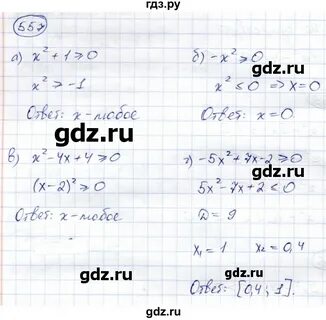 gdz.ru
557
а) x² + 1 ⩾ 0
x² ⩾ -1
Ответ: x - любое
б) -x² ⩾ 0
x² ⩽ 0 => x = 0
Ответ: x = 0
gdz.ru
gdz.ru
в) x² - 4x + 4 ⩾ 0
(x - 2)² ⩾ 0
Ответ: x - любое
г) -5x² + 7x - 2 ⩾ 0
5x² - 7x + 2 ⩽ 0
D = 9
x₁ = 1 x₂ = 0,4
Ответ: [0,4; 1].
gdz.ru
gdz.ru